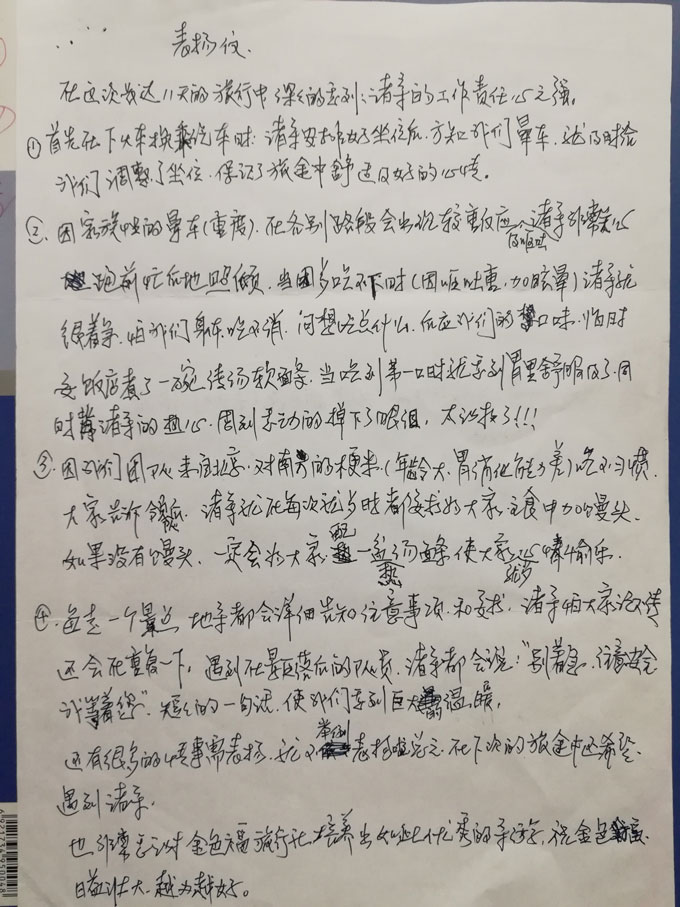 表扬信.
在这次长达11天的旅行中深深的感到:诸导的工作责任心之强。
①首先在下火车换乘汽车时.诸导安排好坐位后.方知我们晕车.就及时给
我们调整了坐位.保证了旅途中舒适良好的心情。
②.因家族性的晕车(重度).在各别路段会出现较重反应及呕吐诸导非常关心
跑前忙后地照顾.当因为吃不下时(因呕吐重.加眩晕)诸导就
很着急.怕我们身体吃不消.问想吃点什么.后应我们的口味.临时
要饭店煮了一碗清汤软面条.当吃到第一口时就感到胃里舒服极了.同
时诸导的热心.周到感动的掉下了眼泪,太让我了!!!
③.因我们团队来自北京.对南方的梗米(年龄大.胃消化能力差)吃不习惯.
大家告诉领队.诸导就在每次就歺时都要求为大家主食中加馒头.
如果没有馒头.一定会为大家配一盆热汤面条使大家心情愉乐.
就歺
④.每走一个景点地导都会详细告知注意事项.和要求.诸导怕大家没听清
还会在重复一下,遇到在最后落后的队员.诸导都会说:"别着急.注意安全
我等着您".短短的一句话.使我们感到巨大温暖,
还有很多的好事需表扬.就不举例表扬啦总之.在下次的旅途中还希望.
遇到诸导.
也非常感谢金色福旅行社培养出如此优秀的导游,祝金色福
日益壮大.越办越好。
6921734950048